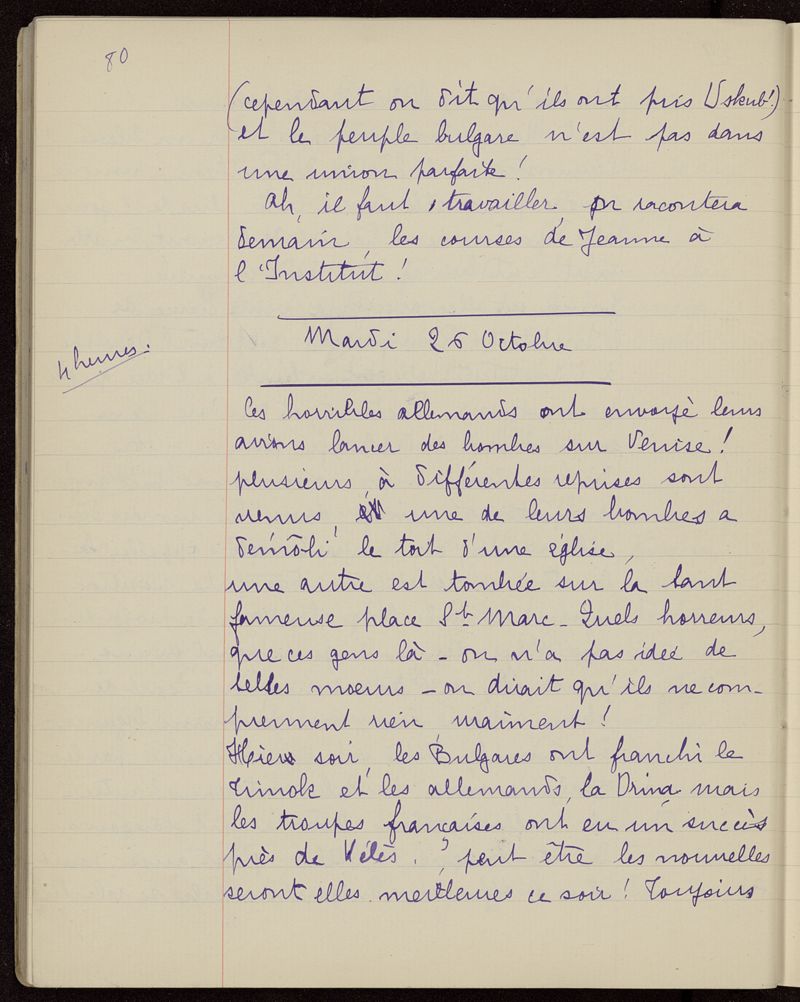 80
(cependant on dit qu'ils ont pris Uskub!)
et le peuple bulgare n'est pas dans
une union parfaite !
Ah, il faut travailler, on racontera
demain, les courses de Jeanne à
l'Institut !
Mardi 26 Octobre
4 heures.
Ces horribles allemands ont envoyé leurs
avions lancer des bombes sur Venise !
plusieurs, à différentes reprises sont
venus, une de leurs bombes a
démoli le toit d'une église,
une autre est tombée sur la tant
fameuse place St Marc - Quels horreurs,
que ces gens là - on n'a pas idée de
telles moeurs - on dirait qu'ils ne com-
prennent rien, vraiment !
Hier soir, les Bulgares ont franchi le
Timok et les allemands, la Drina mais
les troupes françaises ont eu un succès
près de Vélès. peut être les nouvelles
seront elles meilleures ce soir ! Toujours